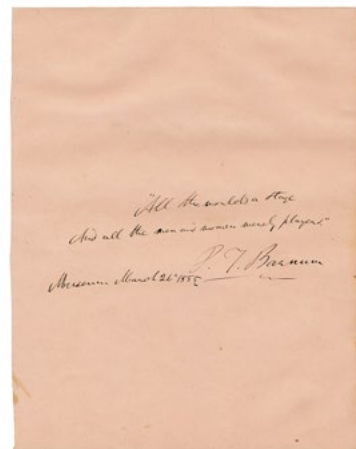 "All the world's a stage
And all the men and women merely players."
P. T. Barnum
Museum March 26 1855